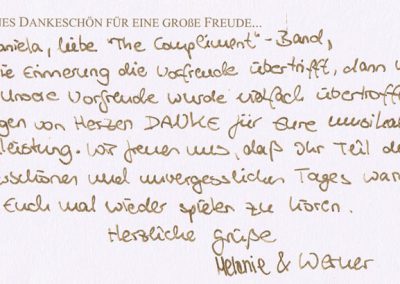 NES DANKESCHÖN FÜR EINE GROßE FREUDE...
aniela, liebe "The Compliment"-Band,
ie Erinnerung die Vorfreude übertrifft, dann w
Unsere Vorfreude wurde vielfach übertroffe
gen von Herzen DANKE für Eure musikal
leistung. Wir freuen uns, daß Ihr Teil de
erschönen und unvergesslichen Tages war
Euch mal wieder spielen zu hören.
Herzliche Grüße
Melanie & Werner